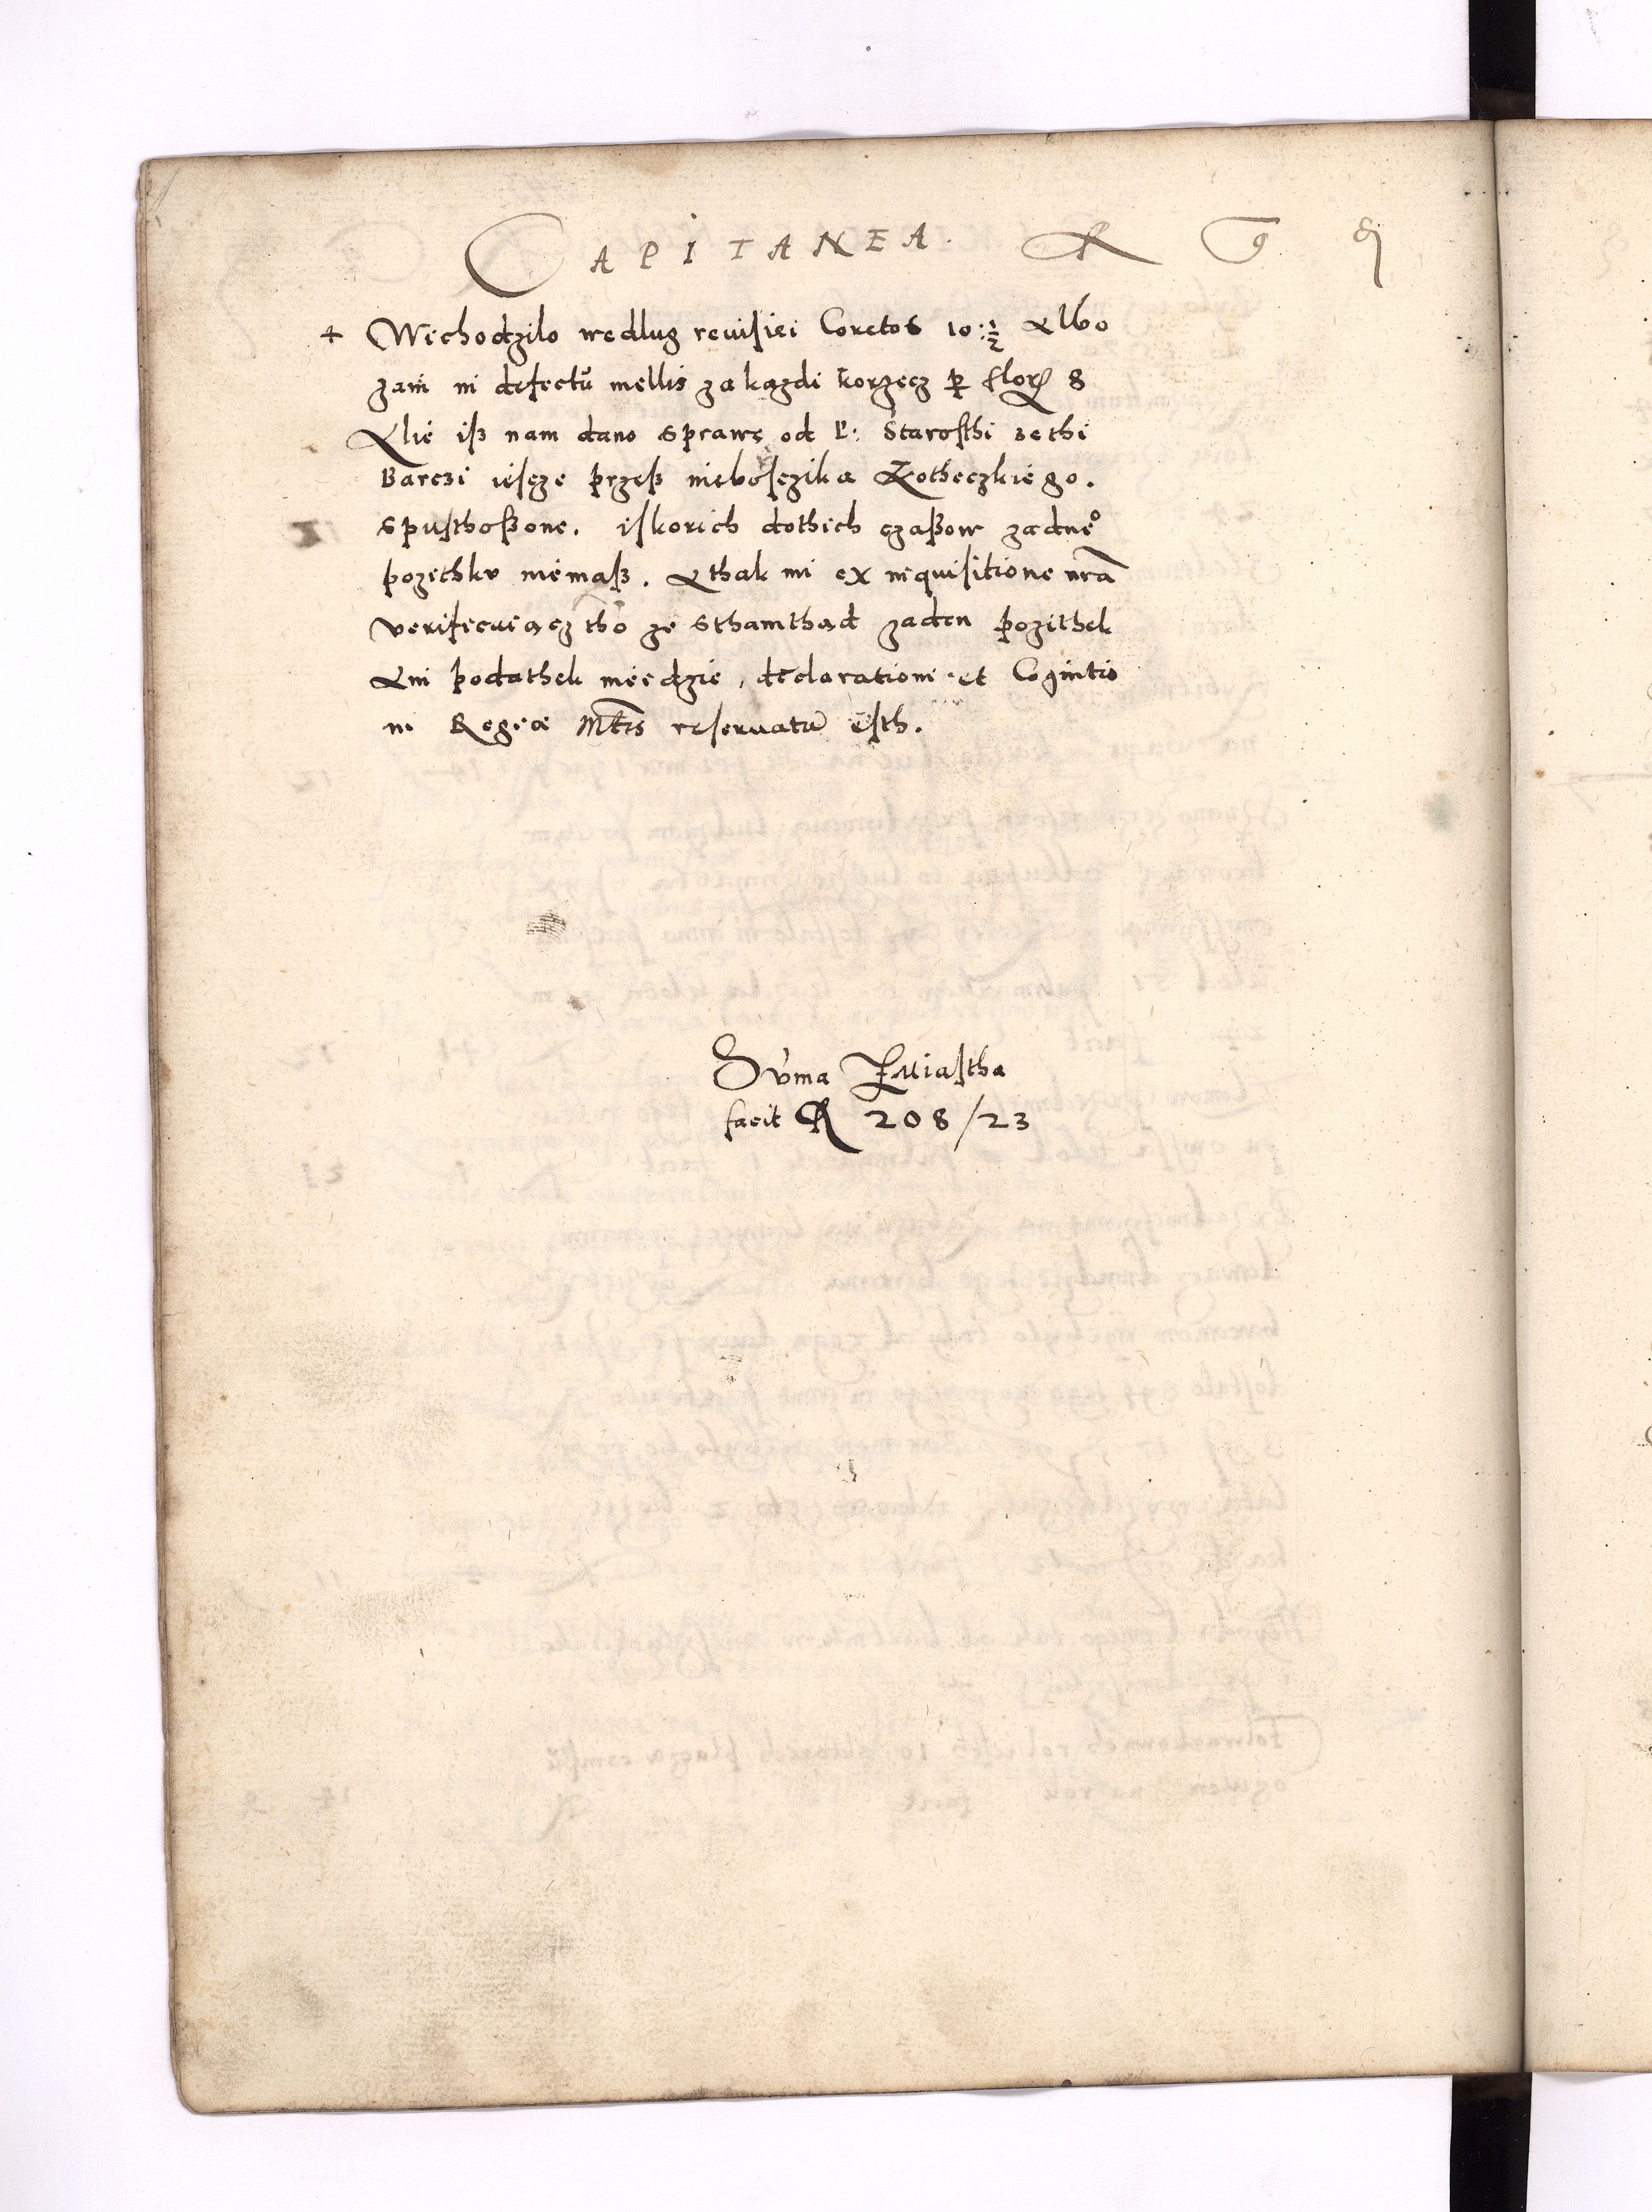 CAPITANEA. R g ₰
+ Wichodzilo wedlug reuisiei Coretos 10:½ Albo
zani in defectū mellis za kazdi korzecz per flor 8
Alie isz nam dano sprawę od P: Starosthi ze thi
Barczi iescze przesz nieboszczika Zotheczkiego.
spusthoszone. iskorich dothich czaszow zadneo
pozithkv niemasz. Athak mi ex inquisitione nrā
verificuiącz tho ze sthamthąd zaden pozithek
Ani podathek nieidzie, declarationi et Cognitio
ni Regiæ Mtis reseruatū esth.
Sum̄a Zmiastha
facit R 208/23